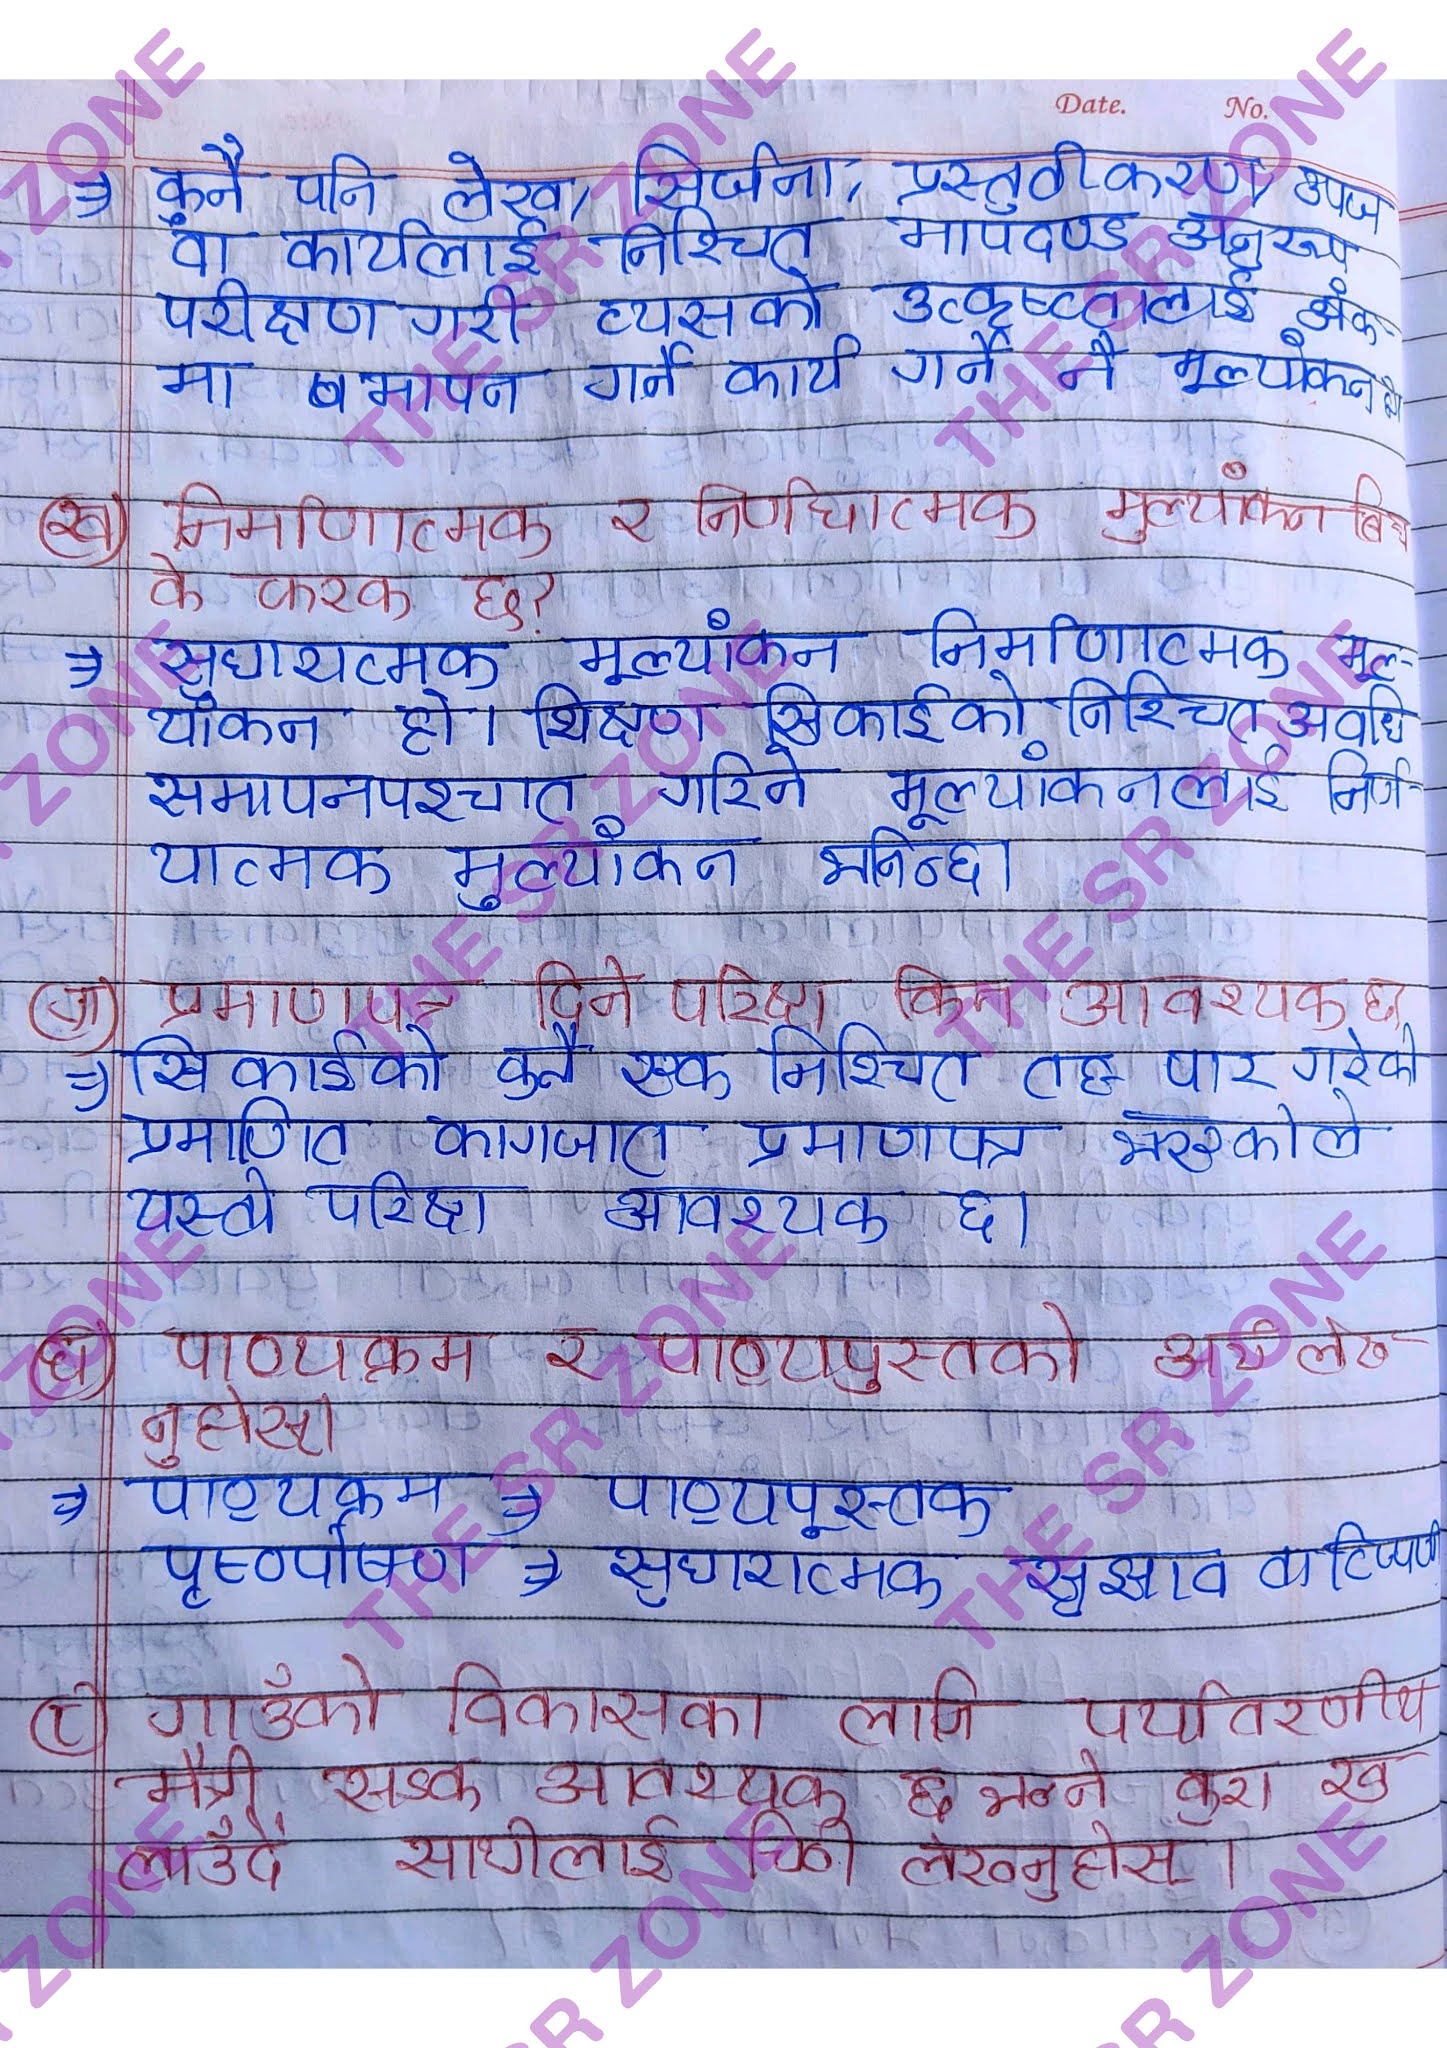 Date. No.
⇒ कुनै पनि लेख, सिर्जना, प्रस्तुतीकरण, उपज
वा कार्यलाई निश्चित मापदण्ड अनुरूप
परीक्षण गरी त्यसको उत्कृष्टतालाई अंक-
मा मापन गर्ने कार्य गर्ने नै मूल्यांकन हो
(ख) निर्माणात्मक र निर्णयात्मक मुल्यांकन बिच
के फरक छ?
⇒ सुधारात्मक मूल्यांकन निर्माणात्मक मूल-
यांकन हो। शिक्षण सिकाईको निश्चित अवधि
समापनपश्चात गरिने मूल्यांकनलाई निर्ण-
यात्मक मुल्यांकन भनिन्छ।
(ग) प्रमाणपत्र दिने परिक्षा किन आवश्यक छ
⇒ सिकाईको कुनै एक निश्चित तह पार गरेको
प्रमाणित कागजात प्रमाणपत्र भएकोले
यस्तो परिक्षा आवश्यक छ।
(घ) पाठ्यक्रम र पाठ्यपुस्तको अर्थ लेख-
नुहोस्।
⇒ पाठ्यक्रम ⇒ पाठ्यपूस्तक
पृष्ठपोषण ⇒ सुधारात्मक सुझाव वा टिप्पणी
गाउँको विकासका लागि पर्यावरणीय
मैत्री सडक आवश्यक छ भन्ने कुरा ख
लाउँदै साथीलाई चिठी लेख्नुहोस्।
THE SR ZONE
THE SR ZONE
THE SR ZONE
THE SR ZONE
THE SR ZONE
THE SR ZONE